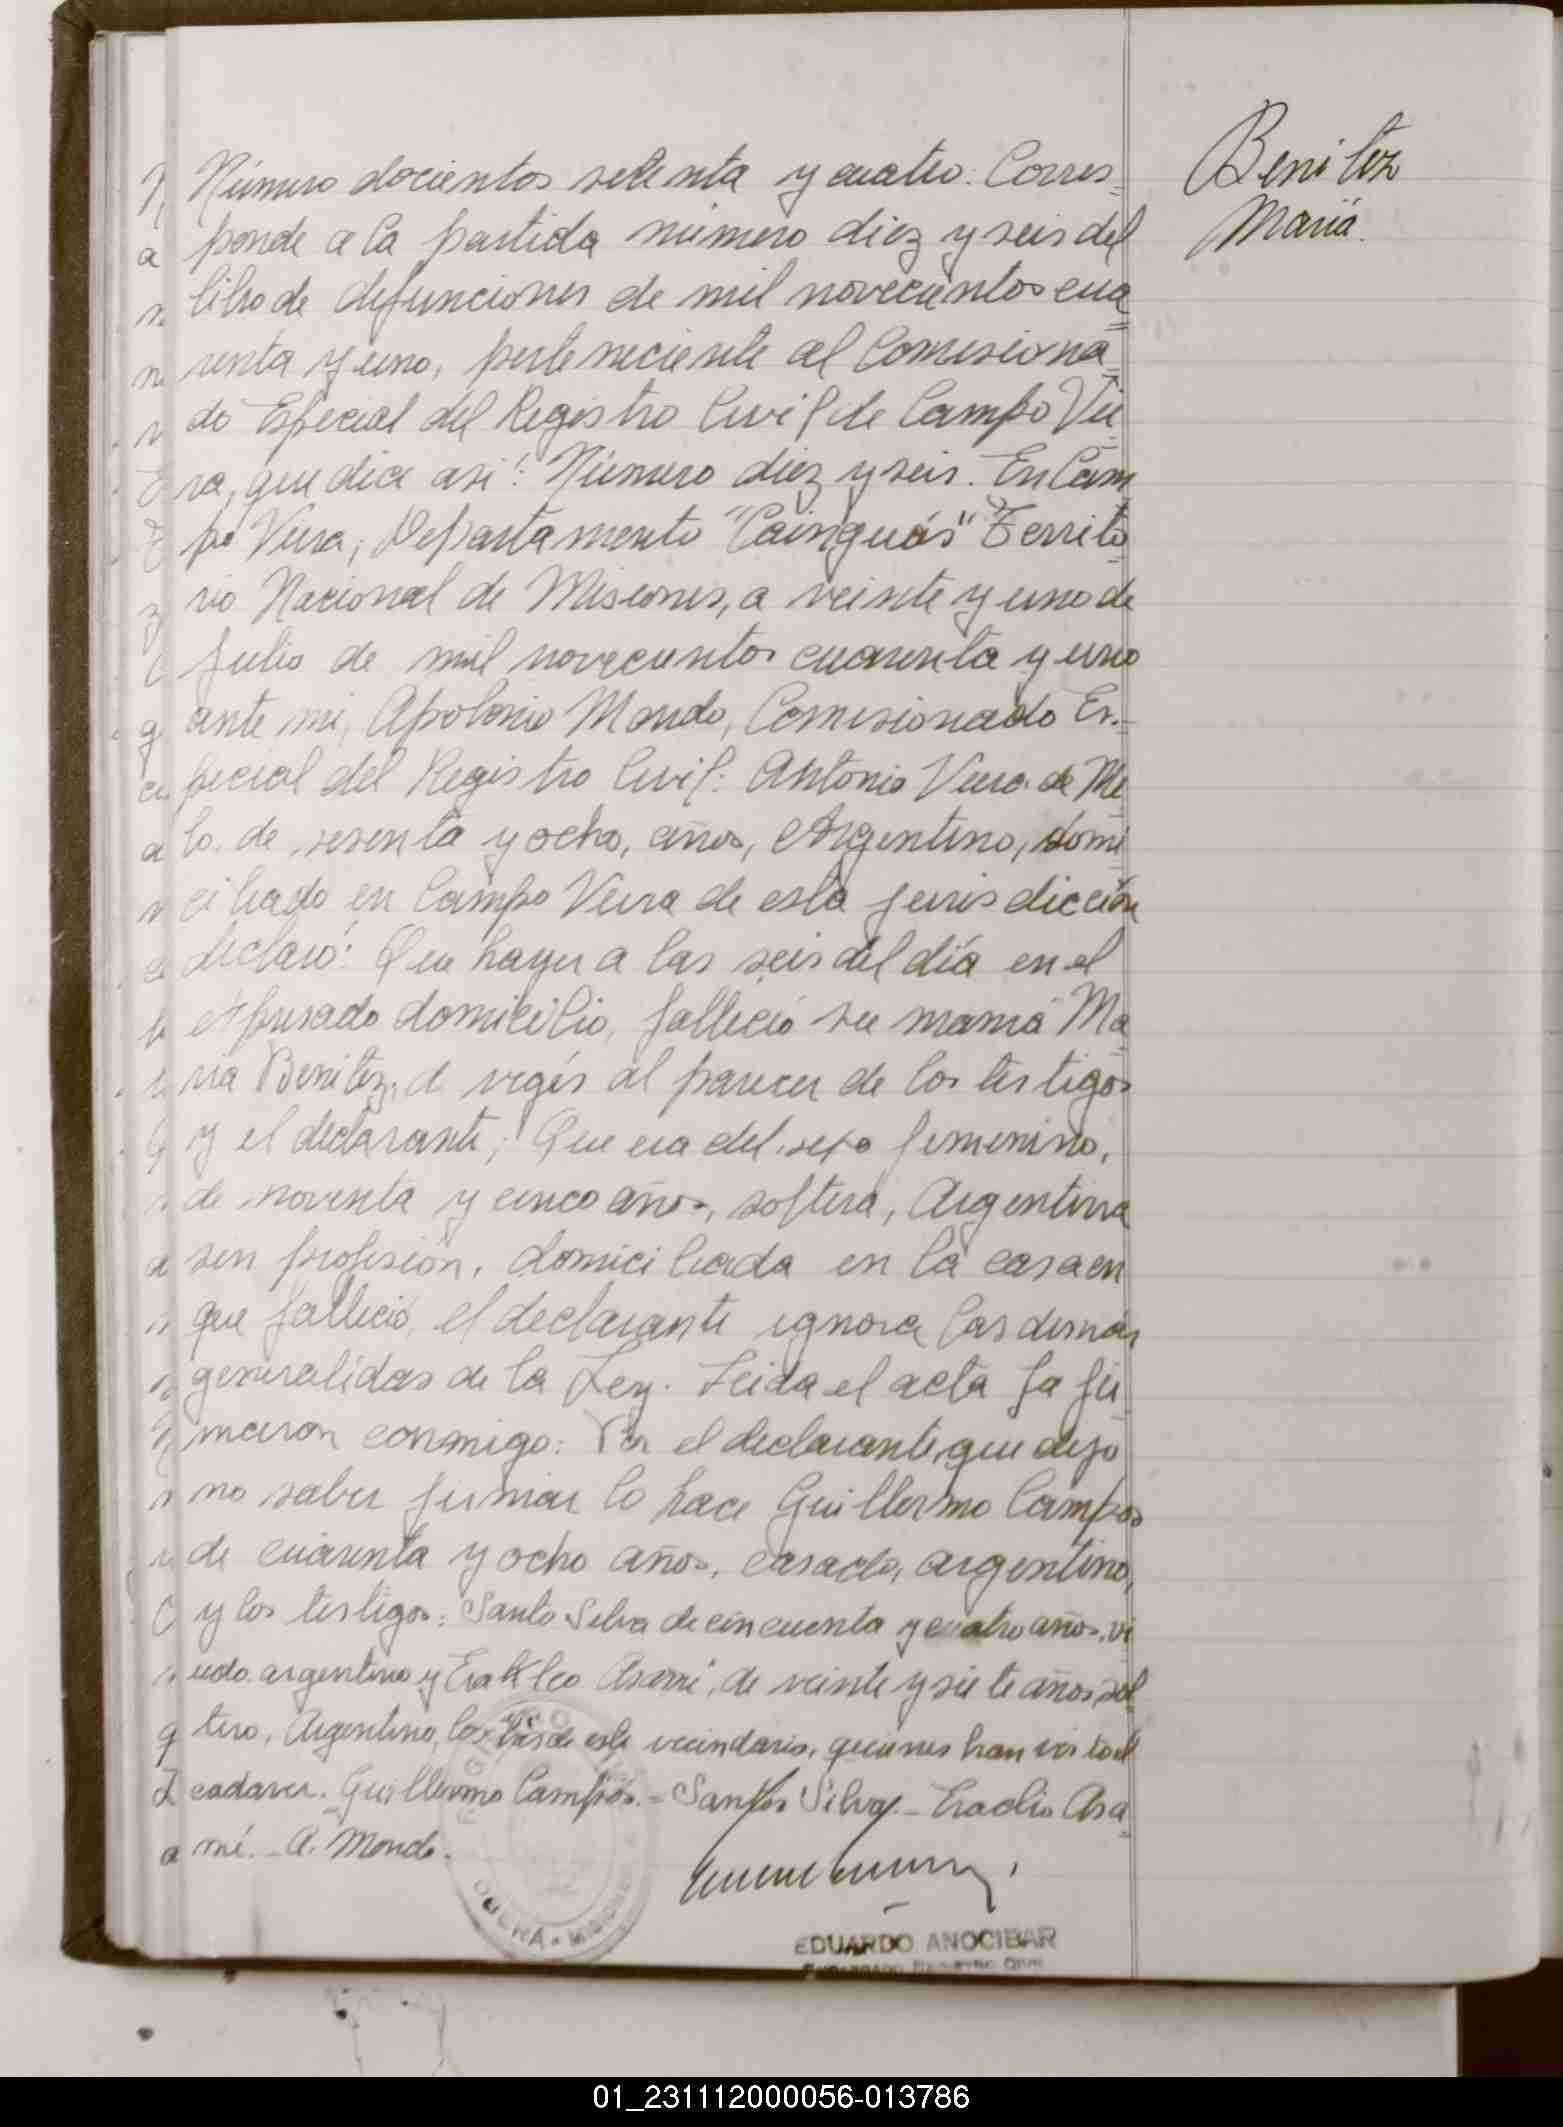 Número docientos setenta y cuatro: Corres=
ponde a la partida número diez y seis del
libro de defunciones de mil novecientos cua=
renta y uno, perteneciente al Comisiona=
do Especial del Registro Civil de Campo Vie=
ra, que dice asi: Número diez y seis. En Cam
po Viera, Departamento "Cainguás" Territo=
rio Nacional de Misiones, a veinte y uno de
Julio de mil novecientos cuarenta y uno
ante mi, Apolonio Mondo, Comisionado Es.=
pecial del Registro Civil: Antonio Viera de Me
lo. de sesenta y ocho, años, Argentino, domi
ciliado en Campo Viera de esta jurisdicción
declaró: Que hayer a las seis del día en el
expresado domicilio, falleció su mamá Ma=
ria Benitez, d vegés al parecer de los testigos
y el declarante; Que era del sexo femenino,
de noventa y cinco años, soltera, Argentina
sin profesión, domiciliada en la casa en
que falleció, el declarante ignora las demás
generalidas de la Ley. Leida el acta la fir
maron conmigo: Por el declarante, que dejo
no saber firmar lo hace Guillermo Campos
de cuarenta y ocho años, casado, argentino,
y los testigos: Santo Silva de cincuenta y cuatro años, vi
udo. argentino y Asami, de veinte y siete años, sol
tero, Argentino, los de este vecindario, quienes han visto el
cadaver. Guillermo Campos.= Santos Silva.- Eraclio Asa=
mí.- A. Mondo.
Benitez
Maria.
OBERA - MISIONES
EDUARDO ANOCIBAR
ENCARGADO REGISTRO CIVIL
01_231112000056-013786